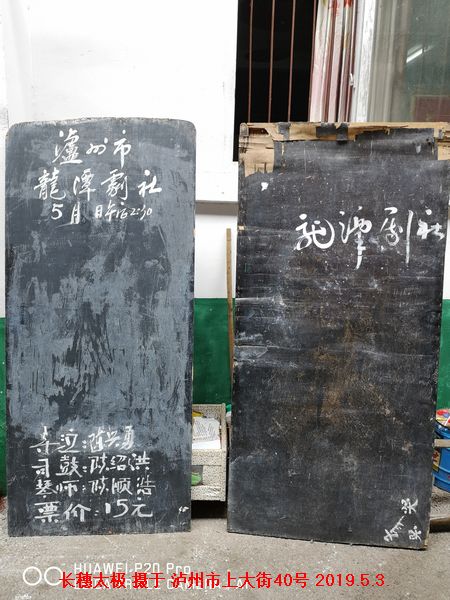 瀘州市
龍潭劇社
5月 日午后2:30
司鼓:陈绍洪
琴师:陈顺浩
票价:15元
龙潭剧社
HUAWEI P20 Pro
长穗太极 摄于 泸州市上大街40号 2019.5.3